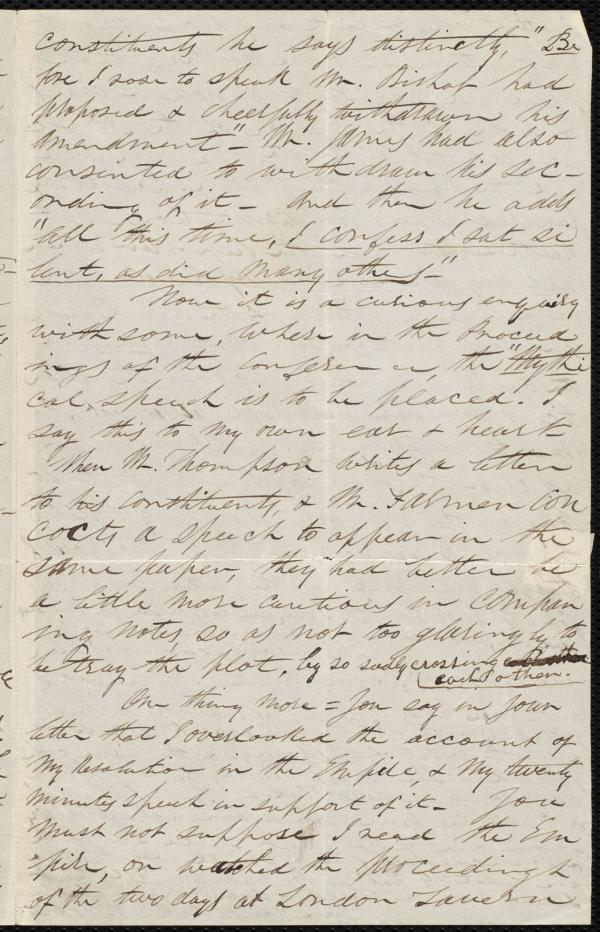 constituents he says distinctly, "Be
fore I rose to speak Mr. Bishop had
proposed & cheerfully withdrawn his
amendment" - Mr. James had also
consented to withdraw his sec-
onding of it - And then he adds
"all this time, I confess I sat si
lent, as did many others -"
Now it is a curious enquiry
with some, where in the Proceed
ings of the Conference, the "Mythi
cal speech is to be placed. I
say this to my own ear & heart -
When Mr. Thompson writes a letter
to his constituents, & Mr. Farmer con
cocts a speech to appear in the
same paper, they had better be
a little more cautious in compar
ing notes so as not too glaringly to
betray the plot, by so sadly crossing
each other.
One thing more = You say in your
letter that I overlooked the account of
my Resolution in the Empire, & my twenty
minutes speech in support of it - You
must not suppose I read the Em
pire, or watched the proceedings
of the two days at London Tavern